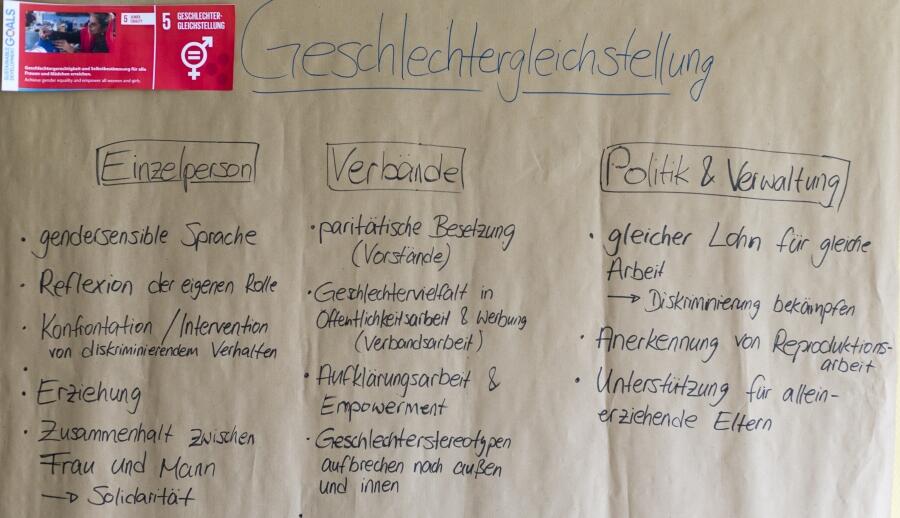 SUSTAINABLE DEVELOPMENT GOALS
5 GENDER EQUALITY
5 GESCHLECHTER-
GLEICHSTELLUNG
Geschlechtergerechtigkeit und Selbstbestimmung für alle
Frauen und Mädchen erreichen.
Achieve gender equality and empower all women and girls.
Geschlechtergleichstellung
Einzelperson
· gendersensible Sprache
· Reflexion der eigenen Rolle
· Konfrontation / Intervention
von diskriminierendem Verhalten
· Erziehung
· Zusammenhalt zwischen
Frau und Mann
→ Solidarität
Verbände
· paritätische Besetzung
(Vorstände)
· Geschlechtervielfalt in
Öffentlichkeitsarbeit & Werbung
(Verbandsarbeit)
· Aufklärungsarbeit &
Empowerment
· Geschlechterstereotypen
aufbrechen nach außen
und innen
Politik & Verwaltung
· gleicher Lohn für gleiche
Arbeit
→ Diskriminierung bekämpfen
· Anerkennung von Reproduktions-
arbeit
· Unterstützung für allein-
erziehende Eltern